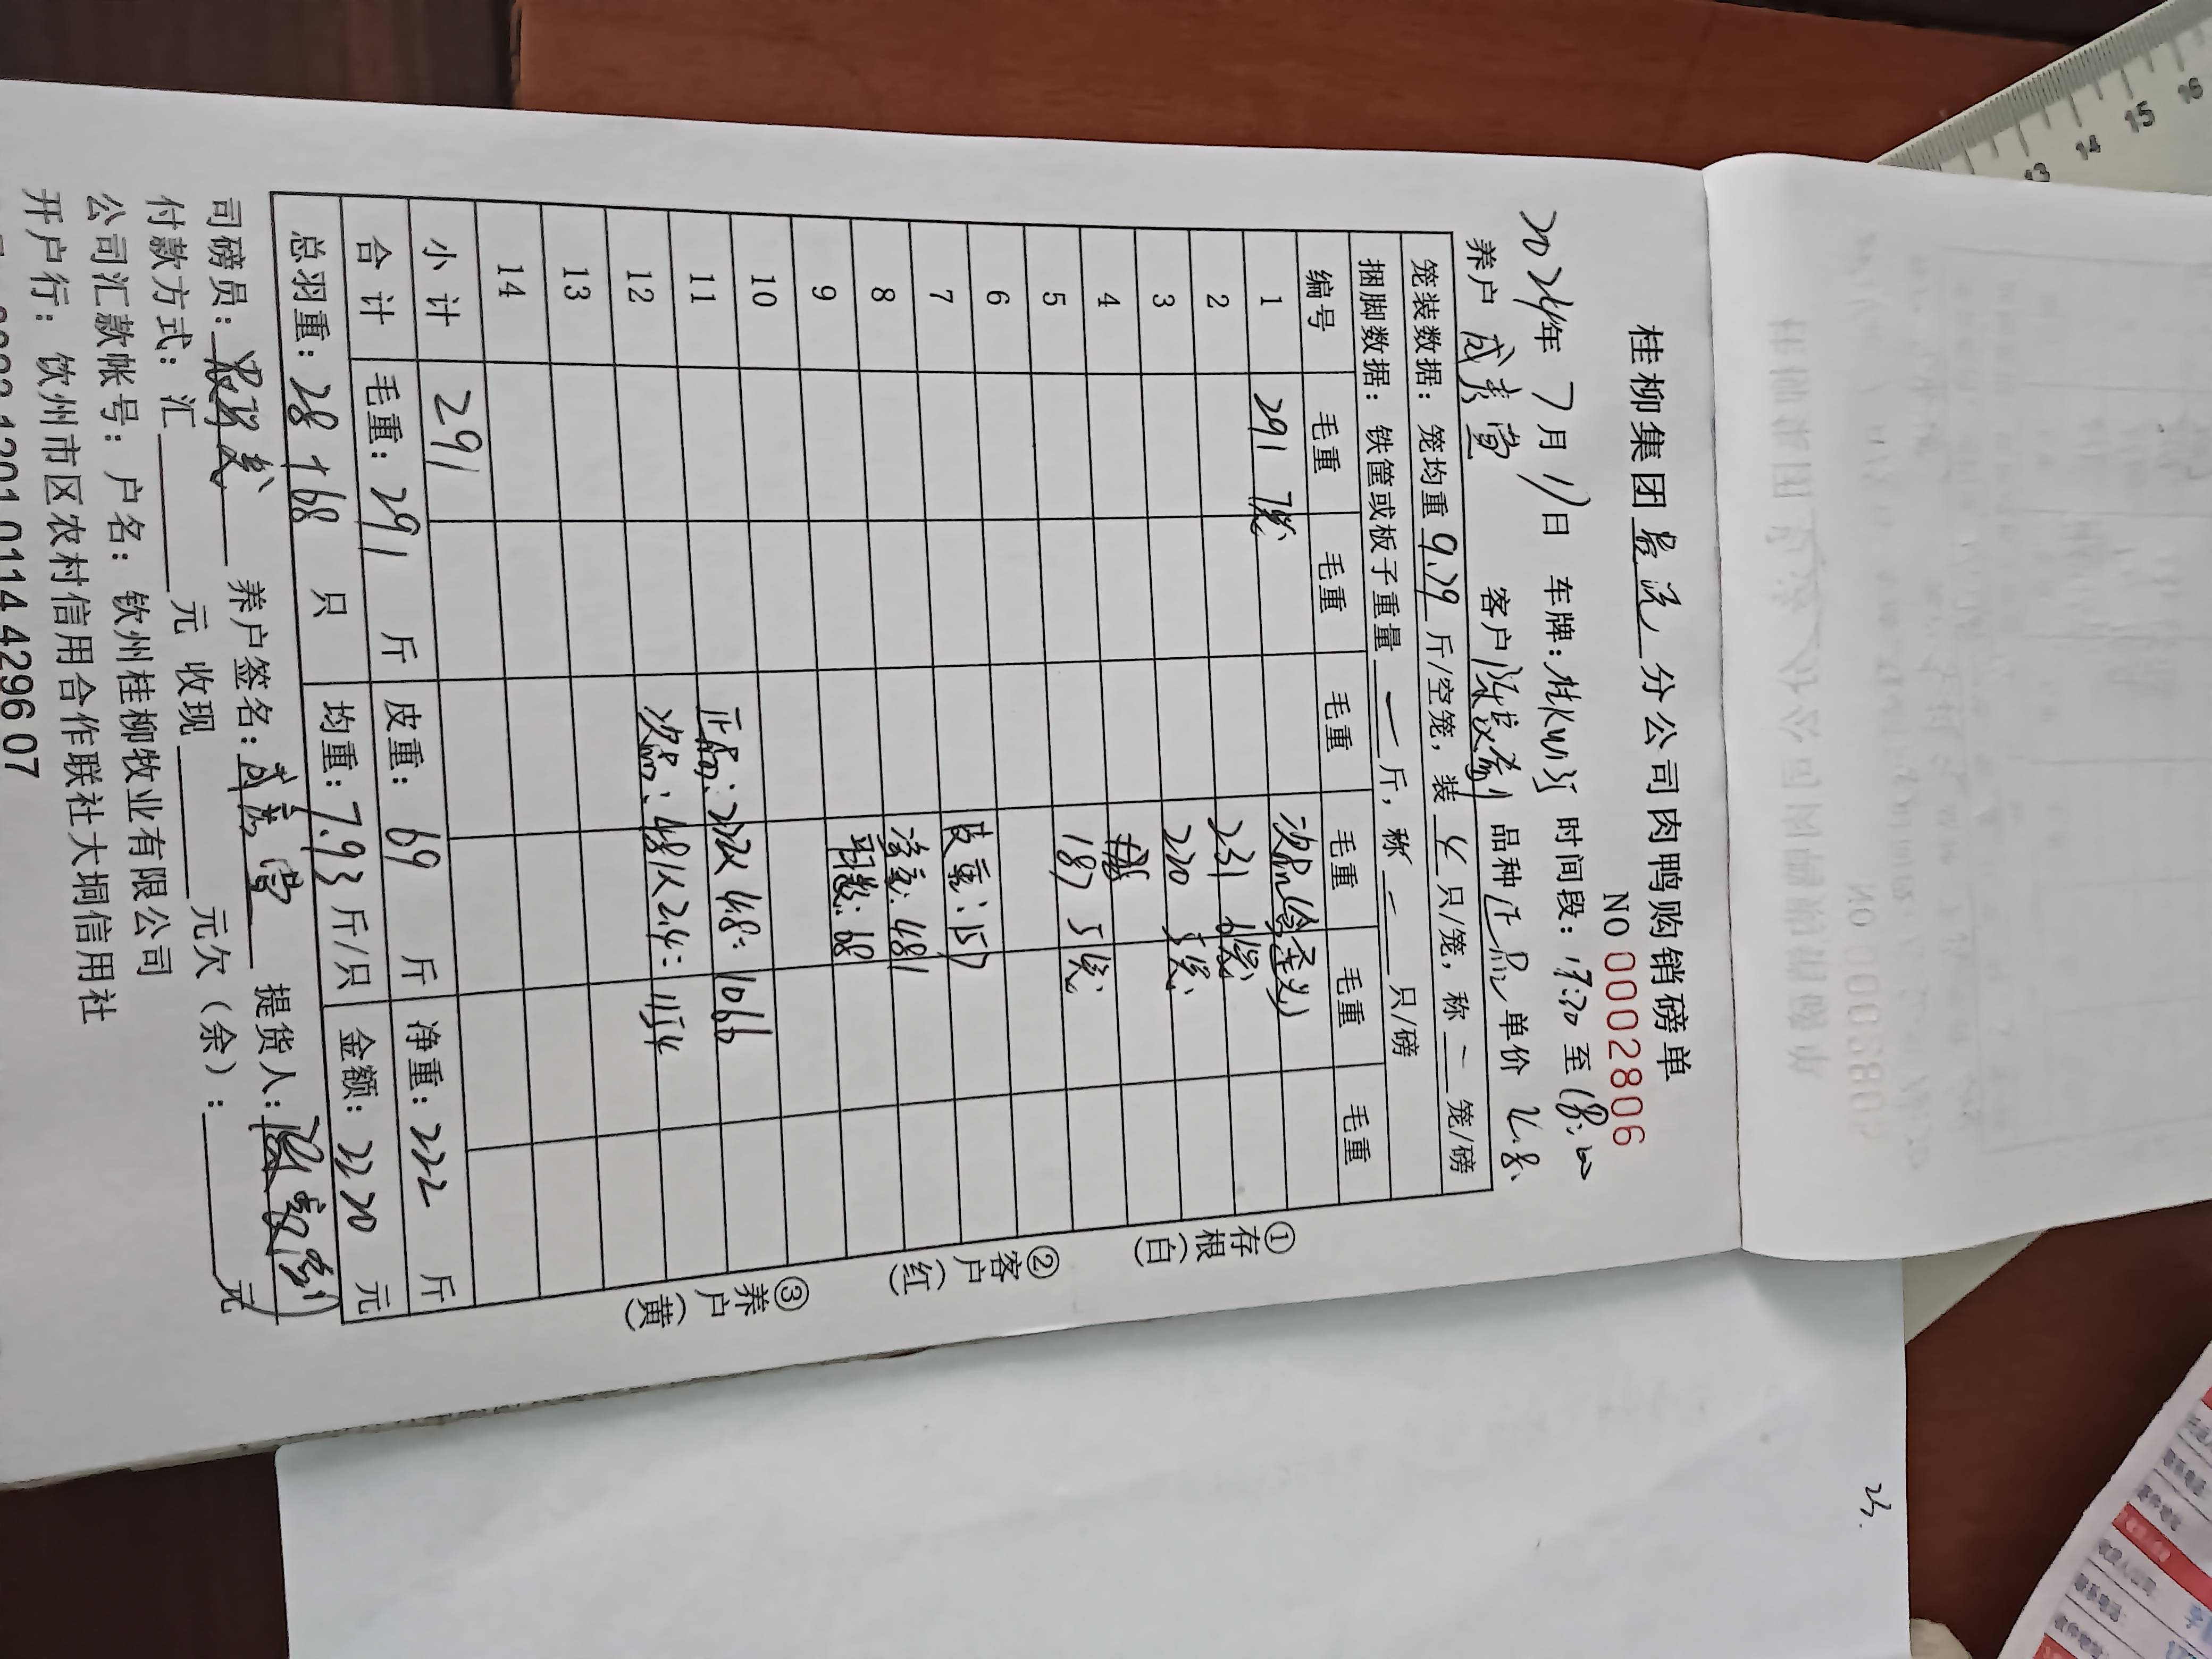 桂柳集团 分公司肉鸭购销磅单
NO 0002806
2024年 7月11日 车牌: 时间段:17:30至18:00
养户 成 堂 客户 品种 正品 单价 4.8
笼装数据:笼均重 9.29 斤/空笼,装 4 只/笼,称 一 笼/磅
捆脚数据:铁筐或板子重量 一 斤,称 一 只/磅
编号 毛重 毛重 毛重 毛重 毛重 毛重
1 291 7笼 次品
2 231 6笼
3 220 笼
4
5 187 5笼
6
7 皮重:157
8 净重:481
9 羽数:68
10
11 正品:222×4.8=1066
12 次品:481×2.4=1154
13
14
小计 291
合计 毛重:291 斤 皮重:69 斤 净重:222 斤
总羽重:28+68 只 均重:7.93 斤/只 金额:2220 元
司磅员: 养户签名: 堂 提货人:
付款方式:汇 元 收现 元欠(余): 元
公司汇款帐号:户名:钦州桂柳牧业有限公司
开户行:钦州市区农村信用合作联社大垌信用社
①存根(白)
②客户(红)
③养户(黄)
13 14 15 16
23.